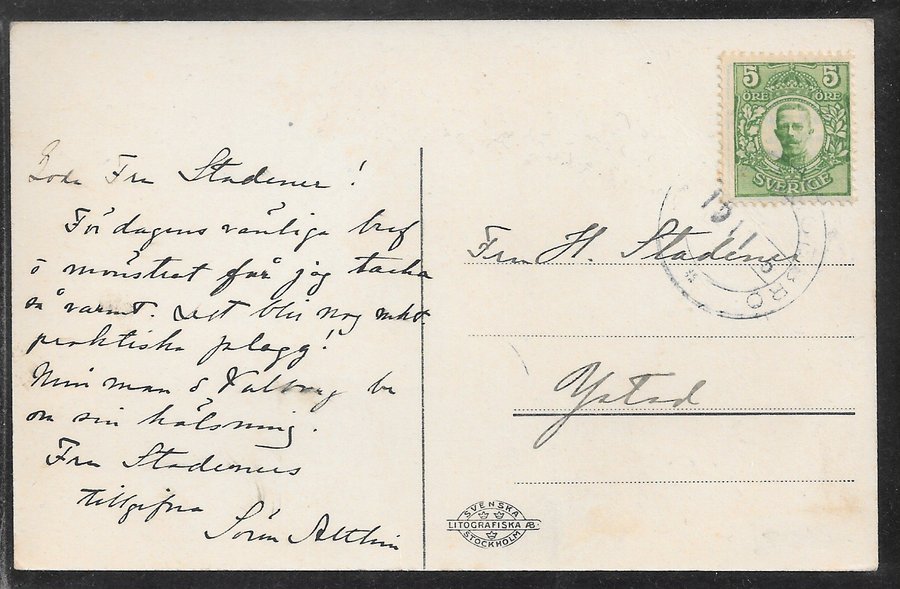 Fru Stadener!
För dagens vänliga bref
o mönstret får jag tacka
så varmt. Det blir nog mkt.
praktiska plagg!
Min man o Valborg be
om sin hälsning.
Fru Stadeners
tillgifna
Althin
5 5
ÖRE ÖRE
SVERIGE
BRO
Fru H. Stadener
Ystad
SVENSKA
LITOGRAFISKA AB.
STOCKHOLM